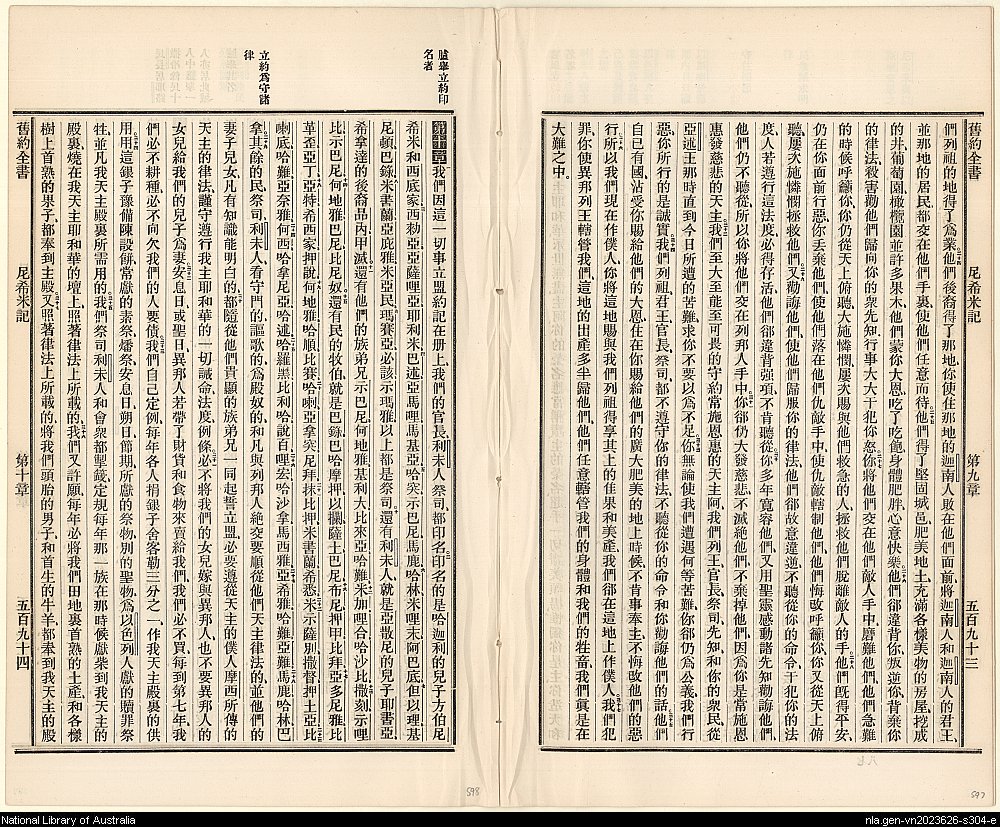 舊約全書 尼希米記 第九章 五百九十三
們列祖的地得了爲業他們後裔得了那地你使住那地的迦南人敗在他們面前將迦南人和迦南人的君王
並那地的居民都交在他們手裏使他們任意而待他們得了堅固城邑肥美地土充滿各樣美物的房屋挖成
的井葡萄園橄欖園並許多果木他們蒙你大恩吃了吃飽身體肥胖心意快樂他們卻違背你叛逆你背棄你
的律法殺害勸他們歸向你的衆先知行事大大干犯你怒你將他們交在他們敵人手中磨難他們他們急難
的時候呼籲你你仍從天上俯聽大施憐憫屢次賜與他們救急的人拯救他們脫離敵人的手他們旣得平安
仍在你面前行惡你丟棄他們使他們落在他們仇敵手中使仇敵轄制他們他們悔改呼籲你你又從天上俯
聽屢次施憐憫拯救他們又勸誨他們使他們歸服你的律法他們卻故意違逆不聽從你的命令干犯你的法
度人若遵行這法度必得存活他們卻違背强項不肯聽從你多年寬容他們又用聖靈感動諸先知勸誨他們
他們仍不聽從所以你將他們交在列邦人手中你卻仍大發慈悲不滅絕他們不棄掉他們因爲你是常施恩
惠發慈悲的天主我們至大至能至可畏的守約常施恩惠的天主阿我們列王官長祭司先知和你的衆民從
亞述王那時直到今日所遭的苦難求你不要以爲不足你無論使我們遭遇何等苦難你卻仍爲公義我們行
惡你所行的是誠實我們列祖君王官長祭司都不遵守你的律法不聽從你的命令和你勸誨他們的話他們
自已有國沾受你賜給他們的大恩住在你賜給他們的廣大肥美的地上時候不肯事奉主不悔改他們的惡
行所以我們現在作僕人你將這地賜與我們列祖得享其上的佳果和美產我們卻在這地上作僕人我們犯
罪你使異邦列王轄管我們這地的出產多半歸他們他們任意轄管我們的身體和我們的牲畜我們眞是在
大難之中
臚舉立約印
名者
立約爲守諸
律
第十章我們因這一切事立盟約記在册上我們的官長利未人祭司都印名印名的是哈迦利的兒子方伯尼
希米和西底家西勑亞亞薩哩亞耶利米巴述亞馬哩馬基亞哈突示巴尼馬鹿哈林米哩末阿巴底但以理基
尼頓巴錄米書蘭亞庇雅米亞民瑪賽亞必該示瑪雅以上都是祭司還有利未人就是亞散尼的兒子耶書亞
希拿達的後裔品丙甲滅還有他們的族弟兄示巴尼何地雅基利大比來亞哈難米加哩合哈沙比撒刻示哩
比示巴尼何地雅巴尼比尼奴還有民的牧伯就是巴錄巴哈摩押以攔薩土巴尼布尼押甲比拜亞多尼雅比
革歪亞丁亞特希西家押說何地雅哈順比賽哈喇亞拿突尼拜抹比押米書蘭希悉米示薩別撒督押土亞比
喇底哈難亞奈雅何西哈拿尼亞哈述哈羅黑比利哈說百哩宏哈沙拿馬西雅亞希雅哈難亞難馬鹿哈林巴
拿其餘的民祭司利未人看守門的謳歌的爲殿奴的和凡與列邦人絕交要順從他們天主律法的並他們的
妻子兒女凡有知識能明白的都隨從他們貴顯的族弟兄一同起誓立盟必要遵從天主的僕人摩西所傳的
天主的律法謹守遵行我主耶和華的一切誡命法度例條必不將我們的女兒嫁與異邦人也不要異邦人的
女兒給我們的兒子爲妻安息日或聖日異邦人若帶了財貨和食物來賣給我們我們必不買每到第七年我
們必不耕種必不向欠我們的人要債我們自己定例每年各人捐銀子舍客勒三分之一作我天主殿裏的供
用用這銀子豫備陳設餅常獻的素祭燔祭安息日朔日節期所獻的祭物別的聖物爲以色列人獻的贖罪祭
牲並凡我天主殿裏所需用的我們祭司利未人和會衆都掣籤定規每年那一族在那時候獻柴到我天主的
殿裏燒在我天主耶和華的壇上照著律法上所載的我們又許願每年必將我們田地裏首熟的土產和各樣
樹上首熟的果子都奉到主殿又照著律法上所載的將我們頭胎的男子和首生的牛羊都奉到我天主的殿
舊約全書 尼希米記 第十章 五百九十四
598
597
National Library of Australia
nla.gen-vn2023626-s304-e